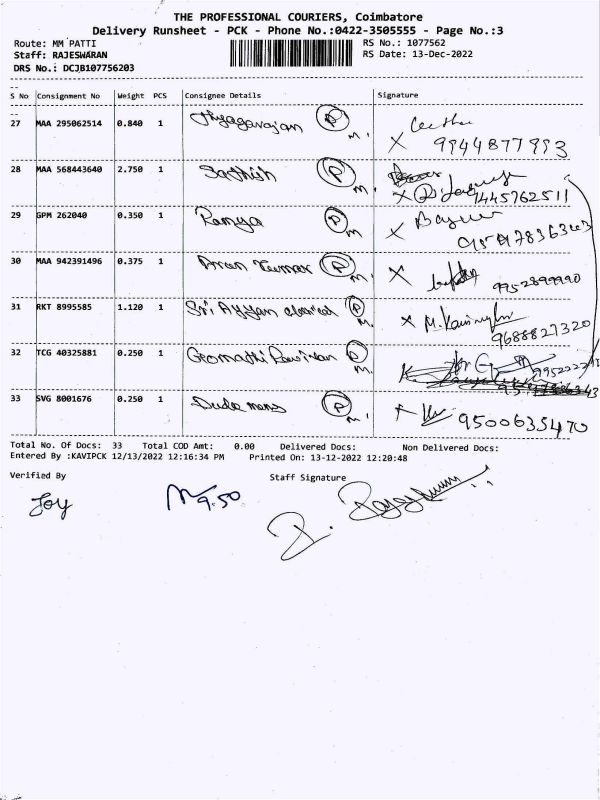 THE PROFESSIONAL COURIERS, Coimbatore
Delivery Runsheet - PCK - Phone No.:0422-3505555 - Page No.:3
Route: MM PATTI RS No.: 1077562
Staff: RAJESWARAN RS Date: 13-Dec-2022
DRS No.: DCJB107756203
S No Consignment No Weight PCS Consignee Details Signature
27 MAA 295062514 0.840 1 Thyagarajan P M.
X 9944877993
28 MAA 568443640 2.750 1 Sathish P M.
X 9445762511
29 GPM 262040 0.350 1 Ramya P M
X
30 MAA 942391496 0.375 1 Arun Kumar P M.
X 9952899990
31 RKT 8995585 1.120 1 Sri Ayyan P M.
X 9688827320
32 TCG 40325881 0.250 1 Gomathi P M.
33 SVG 8001676 0.250 1 Dude mens P M.
9500635470
Total No. Of Docs: 33 Total COD Amt: 0.00 Delivered Docs: Non Delivered Docs:
Entered By :KAVIPCK 12/13/2022 12:16:34 PM Printed On: 13-12-2022 12:20:48
Verified By Staff Signature
Joy 9.50